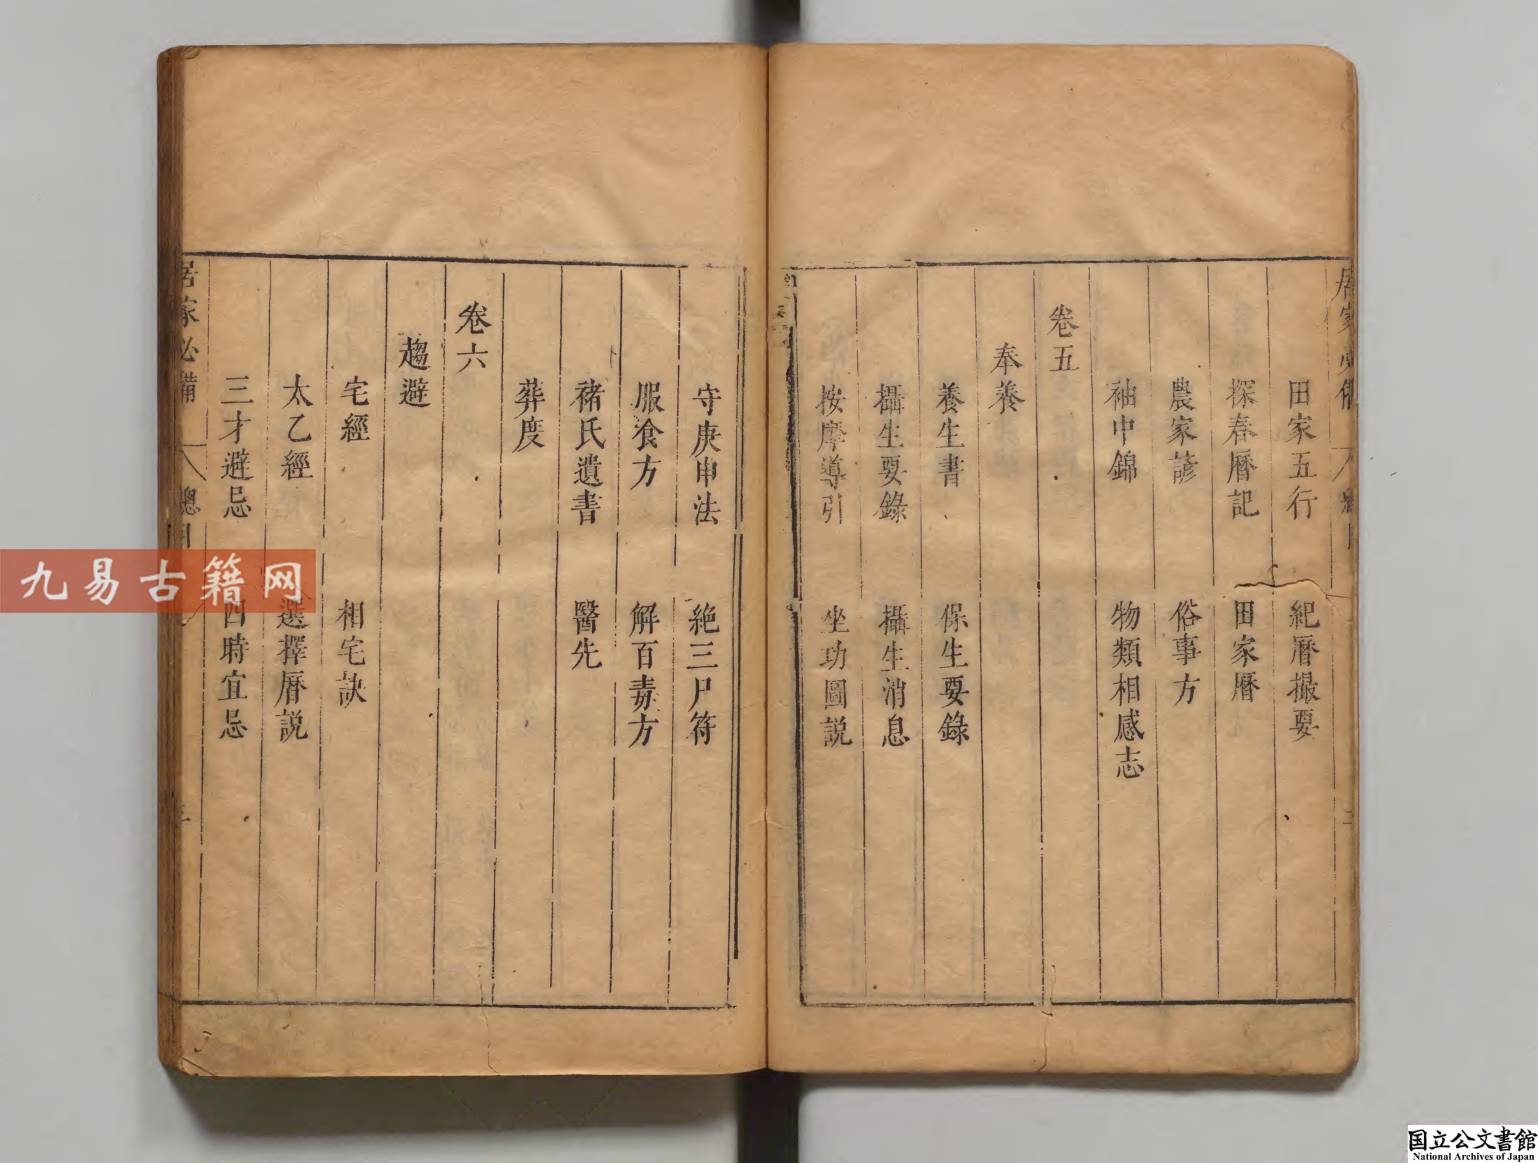 田家五行 紀曆撮要
探春曆記 田家曆
農家諺 俗事方
袖中錦 物類相感志
卷五
奉養
養生書 保生要錄
攝生要錄 攝生消息
按摩導引 坐功圖説
守庚申法 絶三尸符
服食方 解百毒方
褚氏遺書 醫先
葬度
卷六
趨避
宅經 相宅訣
太乙經 選擇曆説
三才避忌 四時宜忌
居家必備 總目
九易古籍网
国立公文書館
National Archives of Japan